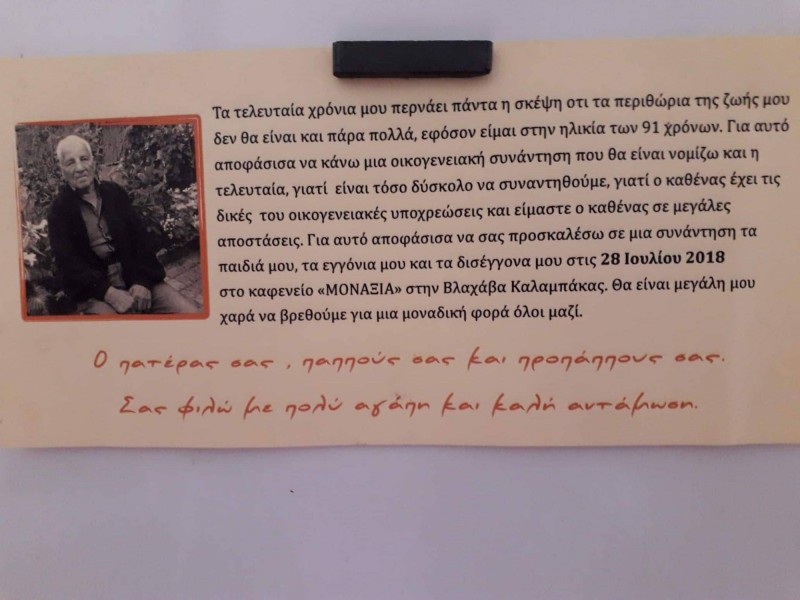 Τα τελευταία χρόνια μου περνάει πάντα η σκέψη οτι τα περιθώρια της ζωής μου
δεν θα είναι και πάρα πολλά, εφόσον είμαι στην ηλικία των 91 χρόνων. Για αυτό
αποφάσισα να κάνω μια οικογενειακή συνάντηση που θα είναι νομίζω και η
τελευταία, γιατί είναι τόσο δύσκολο να συναντηθούμε, γιατί ο καθένας έχει τις
δικές του οικογενειακές υποχρεώσεις και είμαστε ο καθένας σε μεγάλες
αποστάσεις. Για αυτό αποφάσισα να σας προσκαλέσω σε μια συνάντηση τα
παιδιά μου, τα εγγόνια μου και τα δισέγγονα μου στις 28 Ιουλίου 2018
στο καφενείο «ΜΟΝΑΞΙΑ» στην Βλαχάβα Καλαμπάκας. Θα είναι μεγάλη μου
χαρά να βρεθούμε για μια μοναδική φορά όλοι μαζί.
Ο πατέρας σας , παππούς σας και προπάππους σας.
Σας φιλώ με πολύ αγάπη και καλή αντάμωση.